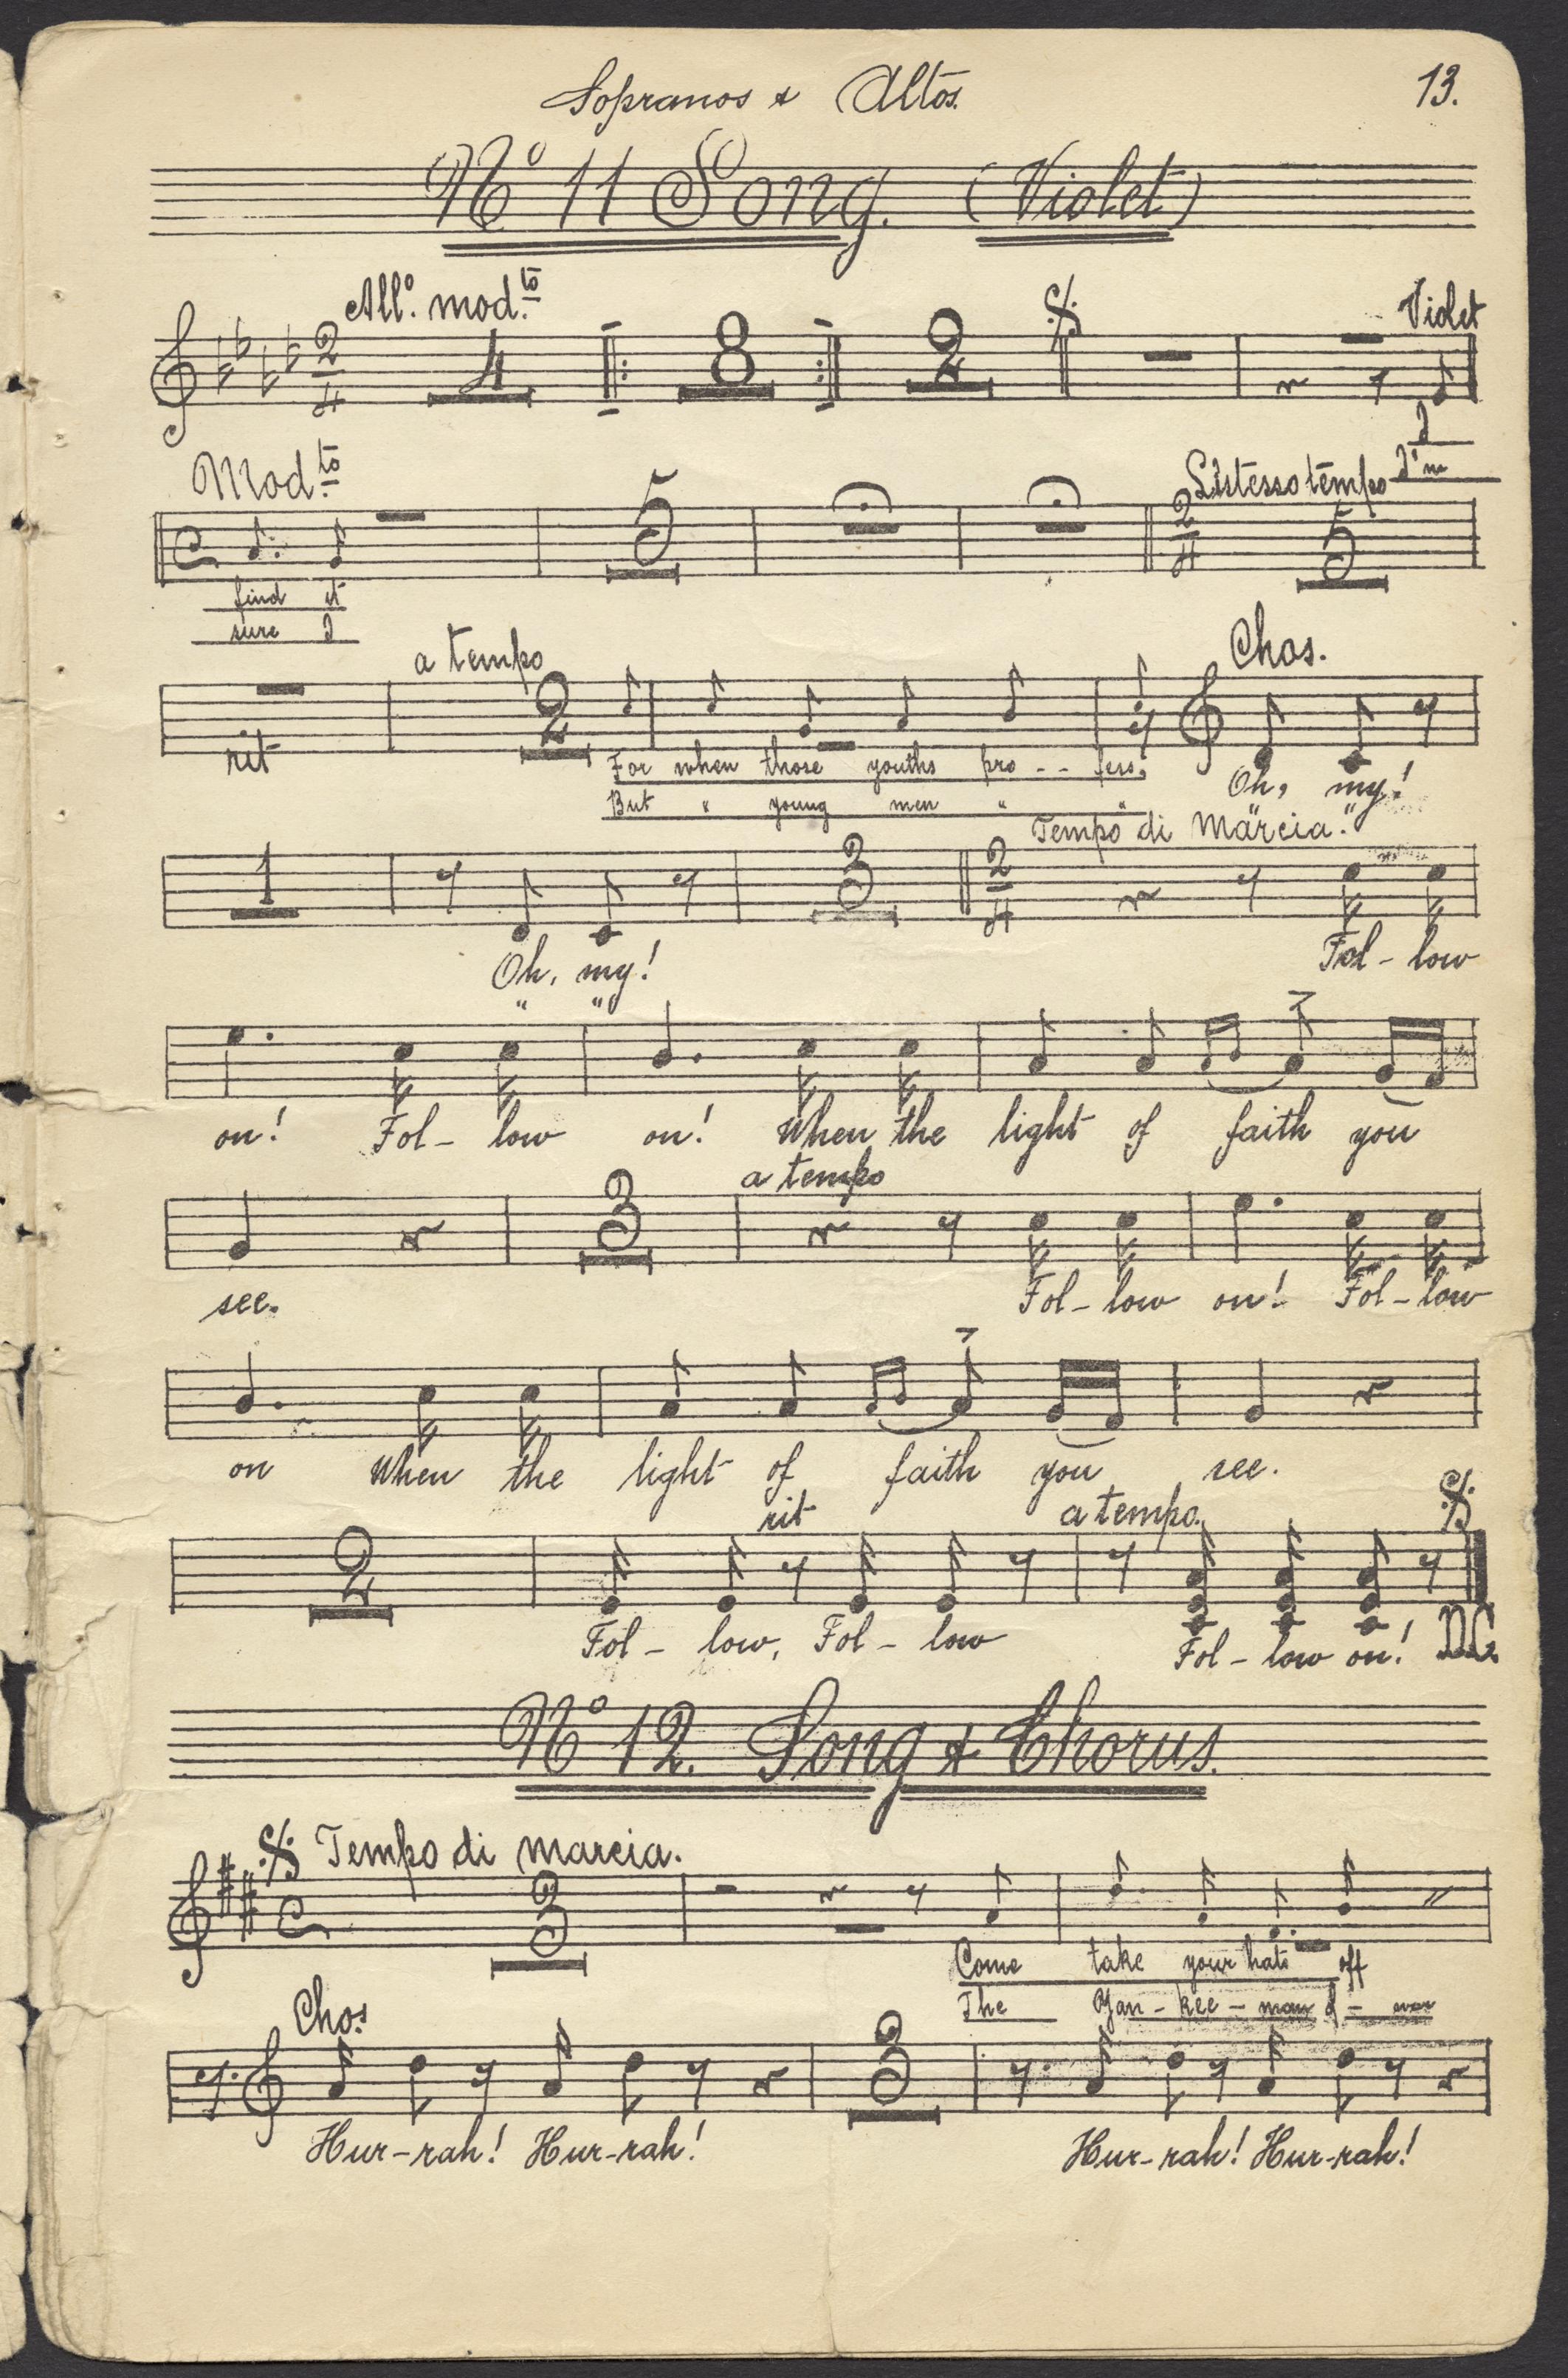 Sopranos & Altos.
13.
No 11 Song. (Violet)
Allo. modto
4
8
2
Violet
2
4
I
I'm
Modto
5
L'istesso tempo
2
4
5
find it
sure I
a tempo
Chos.
rit
2
For when those youths pro - - fess,
Oh, my!
But " young men " "
" "
Tempo di Marcia.
1
3
2
4
Oh, my!
Fol - low
" "
on! Fol - low on! When the light of faith you
a tempo
3
see.
Fol - low on! Fol - low
on When the light of faith you see.
rit
a tempo.
2
Fol - low, Fol - low
Fol - low on!
D.C.
No 12. Song & Chorus.
Tempo di marcia.
C
3
Come take your hats off
The Yan - kee -
Chos
3
Hur - rah! Hur - rah!
Hur - rah! Hur - rah!